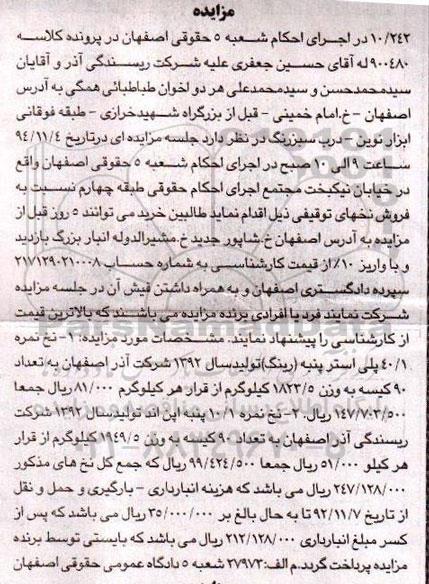 مزایده
۱۰/۲۴۲ در اجرای احکام شعبه ۵ حقوقی اصفهان در پرونده کلاسه
۹۰۰۴۸۰ له آقای حسین جعفری علیه شرکت ریسندگی آذر و آقایان
سیدمحمدحسن و سیدمحمدعلی هر دو اخوان طباطبائی همگی به آدرس
اصفهان - خ.امام خمینی - قبل از بزرگراه شهیدخرازی - طبقه فوقانی
ابزار نوین - درب سبزرنگ در نظر دارد جلسه مزایده ای درتاریخ ۹۴/۱۱/۴
ساعت ۹ الی ۱۰ صبح در اجرای احکام شعبه ۵ حقوقی اصفهان واقع
در خیابان نیکبخت مجتمع اجرای احکام حقوقی طبقه چهارم نسبت به
فروش نخهای توقیفی ذیل اقدام نماید طالبین خرید می توانند ۵ روز قبل از
مزایده به آدرس اصفهان خ.شاپور جدید خ.مشیرالدوله انبار بزرگ بازدید
و با واریز ۱۰٪ از قیمت کارشناسی به شماره حساب ۲۱۷۱۲۹۰۲۱۰۰۰۸
سپرده دادگستری اصفهان و به همراه داشتن فیش آن در جلسه مزایده
شرکت نمایند فرد یا افرادی برنده مزایده می باشند که بالاترین قیمت
از کارشناسی را پیشنهاد نمایند. مشخصات مورد مزایده: ۱- نخ نمره
۴۰/۱ پلی استر پنبه (رینگ) تولیدسال ۱۳۹۲ شرکت آذر اصفهان به تعداد
۹۰ کیسه به وزن ۱۸۲۳/۵ کیلوگرم از قرار هر کیلوگرم ۸۱/۰۰۰ ریال جمعا
۱۴۷/۷۰۳/۵۰۰ ریال. ۲- نخ نمره ۱۰/۱ پنبه اپن اند تولیدسال ۱۳۹۲ شرکت
ریسندگی آذر اصفهان به تعداد ۹۰ کیسه به وزن ۱۹۴۹/۵ کیلوگرم از قرار
هر کیلو ۵۱/۰۰۰ ریال جمعا ۹۹/۴۲۴/۵۰۰ ریال که جمع کل نخ های مذکور
۲۴۷/۱۲۸/۰۰۰ ریال می باشد که هزینه انبارداری - بارگیری و حمل و نقل
از تاریخ ۹۲/۱۱/۷ تا به حال بالغ بر ۳۵/۰۰۰/۰۰۰ ریال می باشد که پس از
کسر مبلغ انبارداری ۲۱۲/۱۲۸/۰۰۰ ریال می باشد که بایستی توسط برنده
مزایده پرداخت گردد.م الف: ۲۷۹۷۳ شعبه ۵ دادگاه عمومی حقوقی اصفهان
ParsNamadData